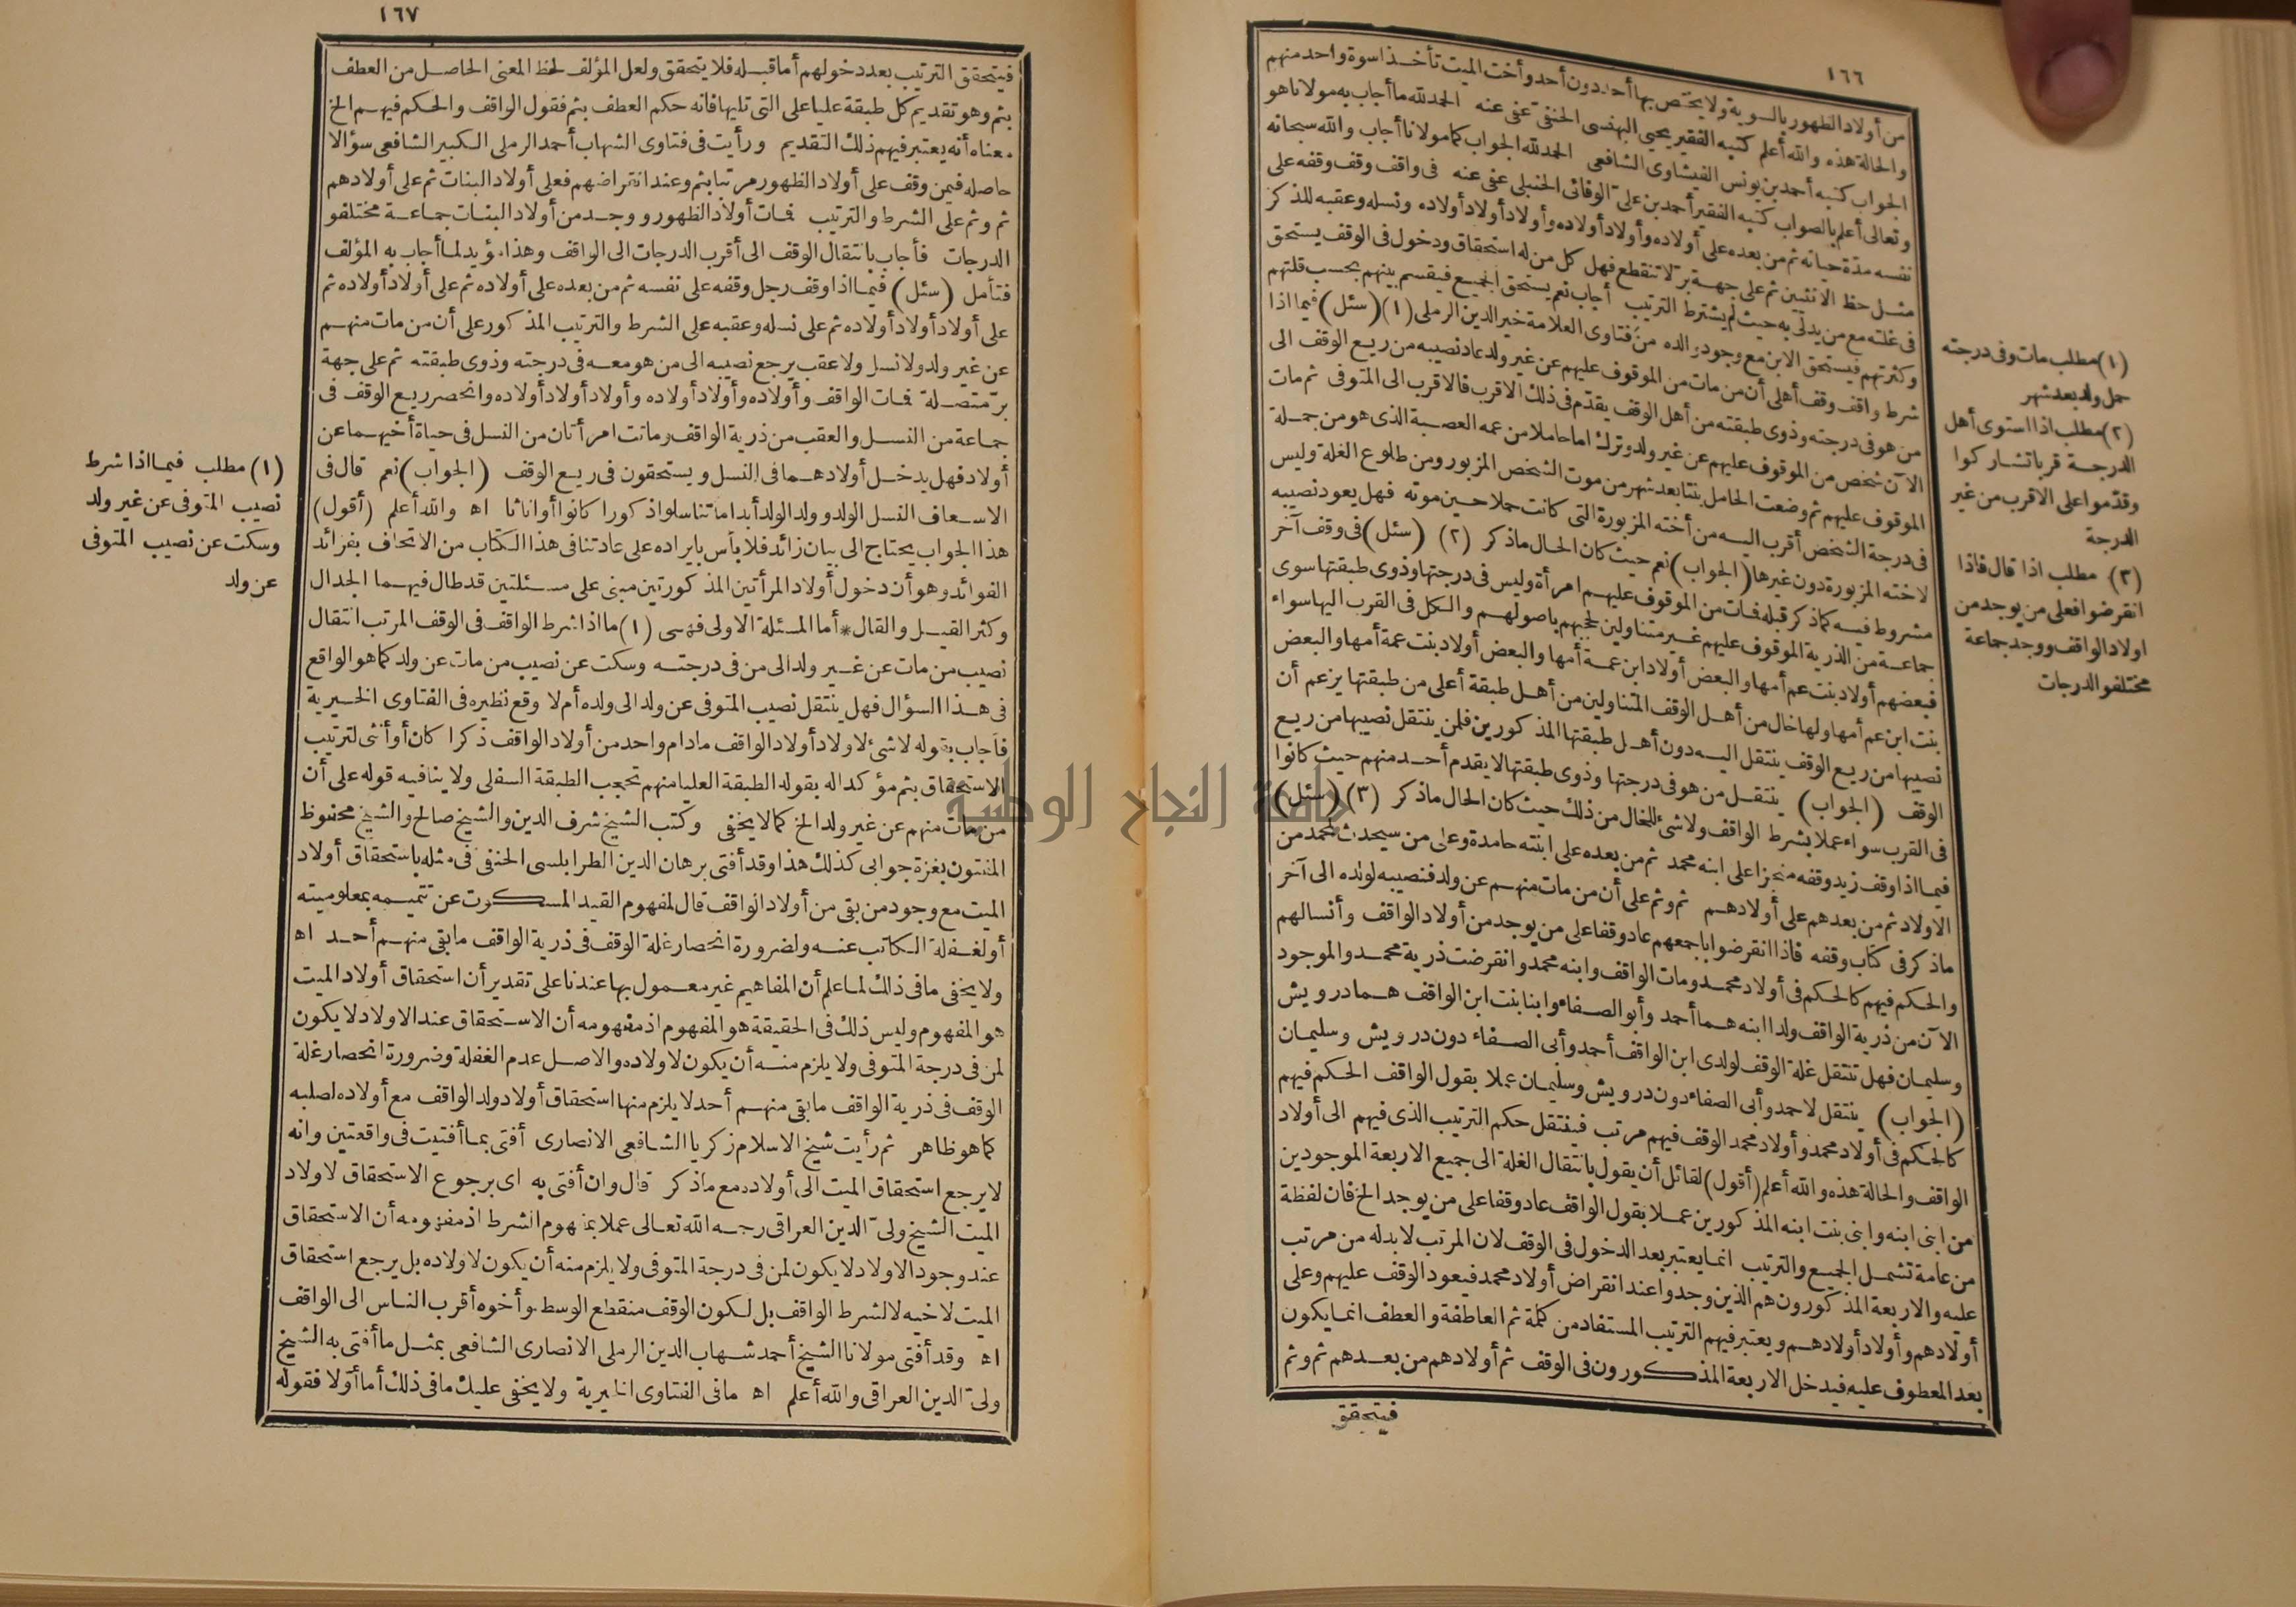 ١٦٦
من أولاد الظهور بالسوية ولا يختص بها أحد دون أحد وأخت الميت تأخذ اسوة واحد منهم
والحالة هذه والله أعلم كتبه الفقير يحيى البهنسى الحنفى عفى عنه الحمد لله ما أجاب به مولانا هو
الجواب كتبه أحمد بن يونس العيثاوى الشافعى الحمد لله الجواب كما مولانا أجاب والله سبحانه
وتعالى أعلم بالصواب كتبه الفقير أحمد بن على الوفائى الحنبلى عفى عنه فى واقف وقف وقفه على
نفسه مدة حياته ثم من بعده على أولاده وأولاد أولاده وأولاد أولاد أولاده ونسله وعقبه للذكر
مثل حظ الانثيين ثم على جهة بر لا تنقطع فهل كل من له استحقاق ودخول فى الوقف يستحق
فى غلته مع من يدلى به حيث لم يشترط الترتيب أجاب نعم يستحق الجميع فيقسم بينهم بحسب قلتهم
وكثرتهم فيستحق الابن مع وجود والده من فتاوى العلامة خير الدين الرملى (١) (سئل) فيما اذا
شرط واقف وقف أهلى أن من مات من الموقوف عليهم عن غير ولد عاد نصيبه من ريع الوقف الى
من هو فى درجته وذوى طبقته من أهل الوقف يقدّم فى ذلك الاقرب فالاقرب الى المتوفى ثم مات
الآن شخص من الموقوف عليهم عن غير ولد وترك اما حاملا من عمه العصبة الذى هو من جملة
الموقوف عليهم ثم وضعت الحامل بنتا بعد شهر من موت الشخص المزبور ومن طلوع الغلة وليس
فى درجة الشخص أقرب اليه من أخته المزبورة التى كانت حملا حين موته فهل يعود نصيبه
لاخته المزبورة دون غيرها (الجواب) نعم حيث كان الحال ما ذكر (٢) (سئل) فى وقف آخر
مشروط فيه كما ذكر قبله فمات من الموقوف عليهم امرأة وليس فى درجتها وذوى طبقتها سوى
جماعة من الذرية الموقوف عليهم غير متناولين لحجبهم باصولهم والكل فى القرب اليها سواء
فبعضهم أولاد بنت عم أمها والبعض أولاد ابن عمة أمها والبعض أولاد بنت عمة أمها والبعض
بنت ابن عم أمها ولها خال من أهل الوقف المتناولين من أهل طبقة أعلى من طبقتها يزعم أن
نصيبها من ريع الوقف ينتقل اليه دون أهل طبقتها المذكورين فلمن ينتقل نصيبها من ريع
الوقف (الجواب) ينتقل من هو فى درجتها وذوى طبقتها لا يقدم أحد منهم حيث كانوا
فى القرب سواء عملا بشرط الواقف ولا شئ للخال من ذلك حيث كان الحال ما ذكر (٣) (سئل)
فيما اذا وقف زيد وقفه منجزا على ابنه محمد ثم من بعده على ابنته حامدة وعلى من سيحدث لمحمد من
الاولاد ثم من بعدهم على أولادهم ثم وثم على أن من مات منهم عن ولد فنصيبه لولده الى آخر
ما ذكر فى كتاب وقفه فاذا انقرضوا باجمعهم عاد وقفا على من يوجد من أولاد الواقف وأنسالهم
والحكم فيهم كالحكم فى أولاد محمد ومات الواقف وابنه محمد وانقرضت ذرية محمد والموجود
الآن من ذرية الواقف ولدا ابنه هما أحمد وأبو الصفاء وابنا بنت ابن الواقف هما درويش
وسليمان فهل تنتقل غلة الوقف لولدى ابن الواقف أحمد وأبى الصفاء دون درويش وسليمان
(الجواب) ينتقل لاحمد وأبى الصفاء دون درويش وسليمان عملا بقول الواقف الحكم فيهم
كالحكم فى أولاد محمد وأولاد محمد الوقف فيهم مرتب فينتقل حكم الترتيب الذى فيهم الى أولاد
الواقف والحالة هذه والله أعلم (أقول) لقائل أن يقول بانتقال الغلة الى جميع الاربعة الموجودين
من ابنى ابنه وابنى بنت ابنه المذكورين عملا بقول الواقف عاد وقفا على من يوجد الخ فان لفظة
من عامة تشمل الجميع والترتيب انما يعتبر بعد الدخول فى الوقف لان المرتب لا بد له من مرتب
عليه والاربعة المذكورون هم الذين وجدوا عند انقراض أولاد محمد فيعود الوقف عليهم وعلى
أولادهم وأولاد أولادهم ويعتبر فيهم الترتيب المستفاد من كلمة ثم العاطفة والعطف انما يكون
بعد المعطوف عليه فيدخل الاربعة المذكورون فى الوقف ثم أولادهم من بعدهم ثم وثم
فيتحقق
(١) مطلب مات وفى درجته
حمل ولد بعد شهر
(٢) مطلب اذا استوى أهل
الدرجة قربا تشاركوا
وقدّموا على الاقرب من غير
الدرجة
(٣) مطلب اذا قال فاذا
انقرضوا فعلى من يوجد من
اولاد الواقف ووجد جماعة
مختلفو الدرجات
١٦٧
فيتحقق الترتيب بعد دخولهم أما قبله فلا يتحقق ولعل المؤلف لحظ المعنى الحاصل من العطف
بثم وهو تقديم كل طبقة عليا على التى تليها فانه حكم العطف بثم فقول الواقف والحكم فيهم الخ
معناه أنه يعتبر فيهم ذلك التقديم ورأيت فى فتاوى الشهاب أحمد الرملى الكبير الشافعى سؤالا
حاصله فيمن وقف على أولاد الظهور مرتبا بثم وعند انقراضهم فعلى أولاد البنات ثم على أولادهم
ثم وثم على الشرط والترتيب فمات أولاد الظهور ووجد من أولاد البنات جماعة مختلفو
الدرجات فأجاب بانتقال الوقف الى أقرب الدرجات الى الواقف وهذا مؤيد لما أجاب به المؤلف
فتأمل (سئل) فيما اذا وقف رجل وقفه على نفسه ثم من بعده على أولاده ثم على أولاد أولاده ثم
على أولاد أولاد أولاده ثم على نسله وعقبه على الشرط والترتيب المذكور على أن من مات منهم
عن غير ولد ولا نسل ولا عقب يرجع نصيبه الى من هو معه فى درجته وذوى طبقته ثم على جهة
بر متصلة فمات الواقف وأولاده وأولاد أولاده وأولاد أولاد أولاده وانحصر ريع الوقف فى
جماعة من النسل والعقب من ذرية الواقف وماتت امرأتان من النسل فى حياة أخيهما عن
أولاد فهل يدخل أولادهما فى النسل ويستحقون فى ريع الوقف (الجواب) نعم قال فى
الاسعاف النسل الولد وولد الولد أبدا ما تناسلوا ذكورا كانوا أو اناثا اه والله أعلم (أقول)
هذا الجواب يحتاج الى بيان زائد فلا بأس بايراده على عادتنا فى هذا الكتاب من الاتحاف بفرائد
الفوائد وهو أن دخول أولاد المرأتين المذكورتين مبنى على مسئلتين قد طال فيهما الجدال
وكثر القيل والقال * أما المسئلة الاولى فهى (١) ما اذا شرط الواقف فى الوقف المرتب انتقال
نصيب من مات عن غير ولد الى من فى درجته وسكت عن نصيب من مات عن ولد كما هو الواقع
فى هذا السؤال فهل ينتقل نصيب المتوفى عن ولد الى ولده أم لا وقع نظيره فى الفتاوى الخيرية
فأجاب بقوله لا شئ لاولاد أولاد الواقف ما دام واحد من أولاد الواقف ذكرا كان أو أنثى لترتيب
الاستحقاق بثم مؤكدا له بقوله الطبقة العليا منهم تحجب الطبقة السفلى ولا ينافيه قوله على أن
من مات منهم عن غير ولد الخ كما لا يخفى وكتب الشيخ شرف الدين والشيخ صالح والشيخ محفوظ
المفتون بغزة جوابى كذلك هذا وقد أفتى برهان الدين الطرابلسى الحنفى فى مثله باستحقاق أولاد
الميت مع وجود من بقى من أولاد الواقف قال لمفهوم القيد المسكوت عن تتميمه بمعلوميته
أو لغفلة الكاتب عنه ولضرورة انحصار غلة الوقف فى ذرية الواقف ما بقى منهم أحد اه
ولا يخفى ما فى ذلك لما علم أن المفاهيم غير معمول بها عندنا على تقدير أن استحقاق أولاد الميت
هو المفهوم وليس ذلك فى الحقيقة هو المفهوم اذ مفهومه أن الاستحقاق عند الاولاد لا يكون
لمن فى درجة المتوفى ولا يلزم منه أن يكون لاولاده والاصل عدم الغفلة وضرورة انحصار غلة
الوقف فى ذرية الواقف ما بقى منهم أحد لا يلزم منها استحقاق أولاد ولد الواقف مع أولاده لصلبه
كما هو ظاهر ثم رأيت شيخ الاسلام زكريا الشافعى الانصارى أفتى بما أفتيت فى واقعتين وانه
لا يرجع استحقاق الميت الى أولاده مع ما ذكر قال وان أفتى به اى برجوع الاستحقاق لاولاد
الميت الشيخ ولى الدين العراقى رحمه الله تعالى عملا بمفهوم الشرط اذ مفهومه أن الاستحقاق
عند وجود الاولاد لا يكون لمن فى درجة المتوفى ولا يلزم منه أن يكون لاولاده بل يرجع استحقاق
الميت لاخيه لا لشرط الواقف بل لكون الوقف منقطع الوسط وأخوه أقرب الناس الى الواقف
اه وقد أفتى مولانا الشيخ أحمد شهاب الدين الرملى الانصارى الشافعى بمثل ما أفتى به الشيخ
ولى الدين العراقى والله أعلم اه ما فى الفتاوى الخيرية ولا يخفى عليك ما فى ذلك أما أولا فقوله
(١) مطلب فيما اذا شرط
نصيب المتوفى عن غير ولد
وسكت عن نصيب المتوفى
عن ولد
جامعة النجاح الوطنية